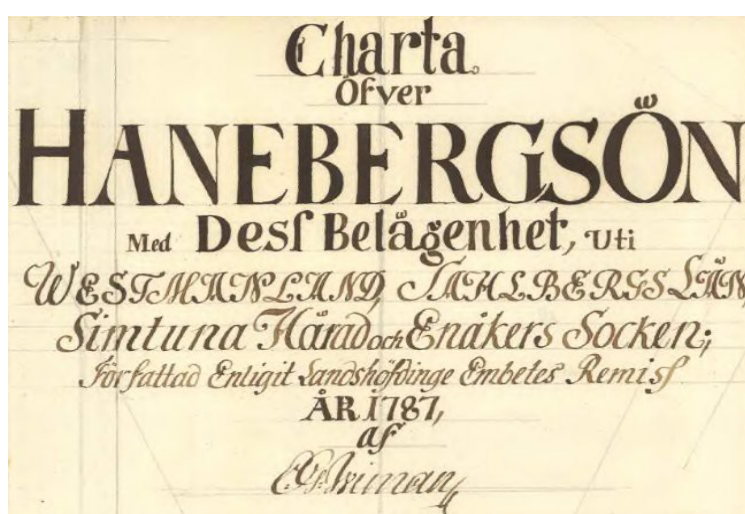 Charta.
Öfver
HANEBERGSÖN
Med Desſ Belägenhet, Uti
WESTMANLAND, SAHLBERGS LÄN,
Simtuna Härad och Enåkers Socken;
Författad Enligit Landshöfdinge Embetes Remisſ
ÅR 1787,
af